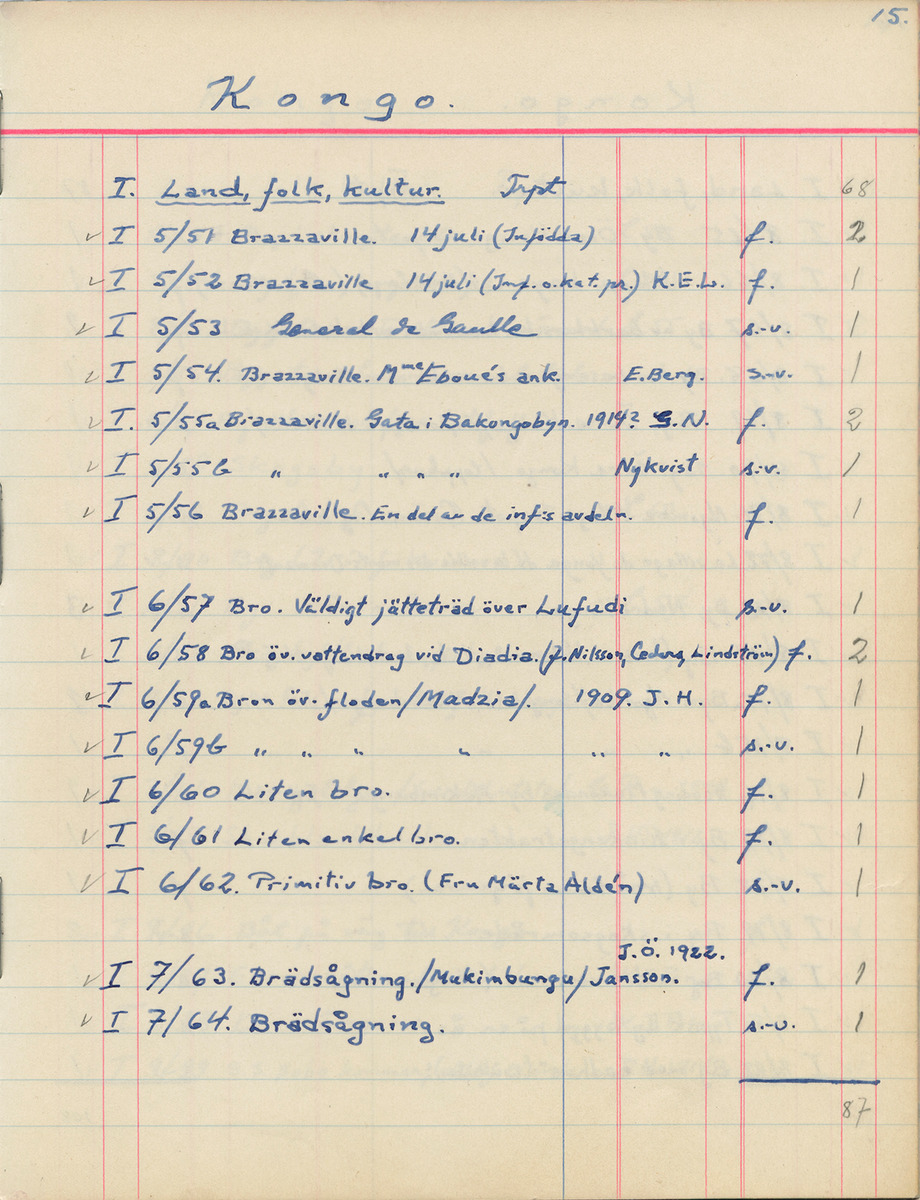 15.
Kongo.
I. Land, folk, kultur. Trpt 68
✓ I 5/51 Brazzaville. 14 juli (Infödda) f. 2
✓ I 5/52 Brazzaville 14 juli (Inf. o. kat. pr.) K.E.L. f. 1
✓ I 5/53 General de Gaulle s.-v. 1
✓ I 5/54. Brazzaville. Mme Eboué's ank. E. Berg. s.-v. 1
✓ I. 5/55a Brazzaville. Gata i Bakongobyn. 1914? G.N. f. 2
✓ I 5/55b " " " " Nykvist s.-v. 1
✓ I 5/56 Brazzaville. En del av de inf:s avdeln. f. 1
✓ I 6/57 Bro. Väldigt jätteträd över Lufudi s.-v. 1
✓ I 6/58 Bro öv. vattendrag vid Diadia. (J. Nilsson, Cedong, Lindström) f. 2
✓ I 6/59a Bron öv. floden /Madzia/. 1909. J.H. f. 1
✓ I 6/59b " " " " " " s.-v. 1
✓ I 6/60 Liten bro. f. 1
✓ I 6/61 Liten enkel bro. f. 1
✓ I 6/62. Primitiv bro. (Fru Märta Aldén) s.-v. 1
J.Ö. 1922.
✓ I 7/63. Brädsågning. /Mukimbungu/ Jansson. f. 1
✓ I 7/64. Brädsågning. s.-v. 1
87